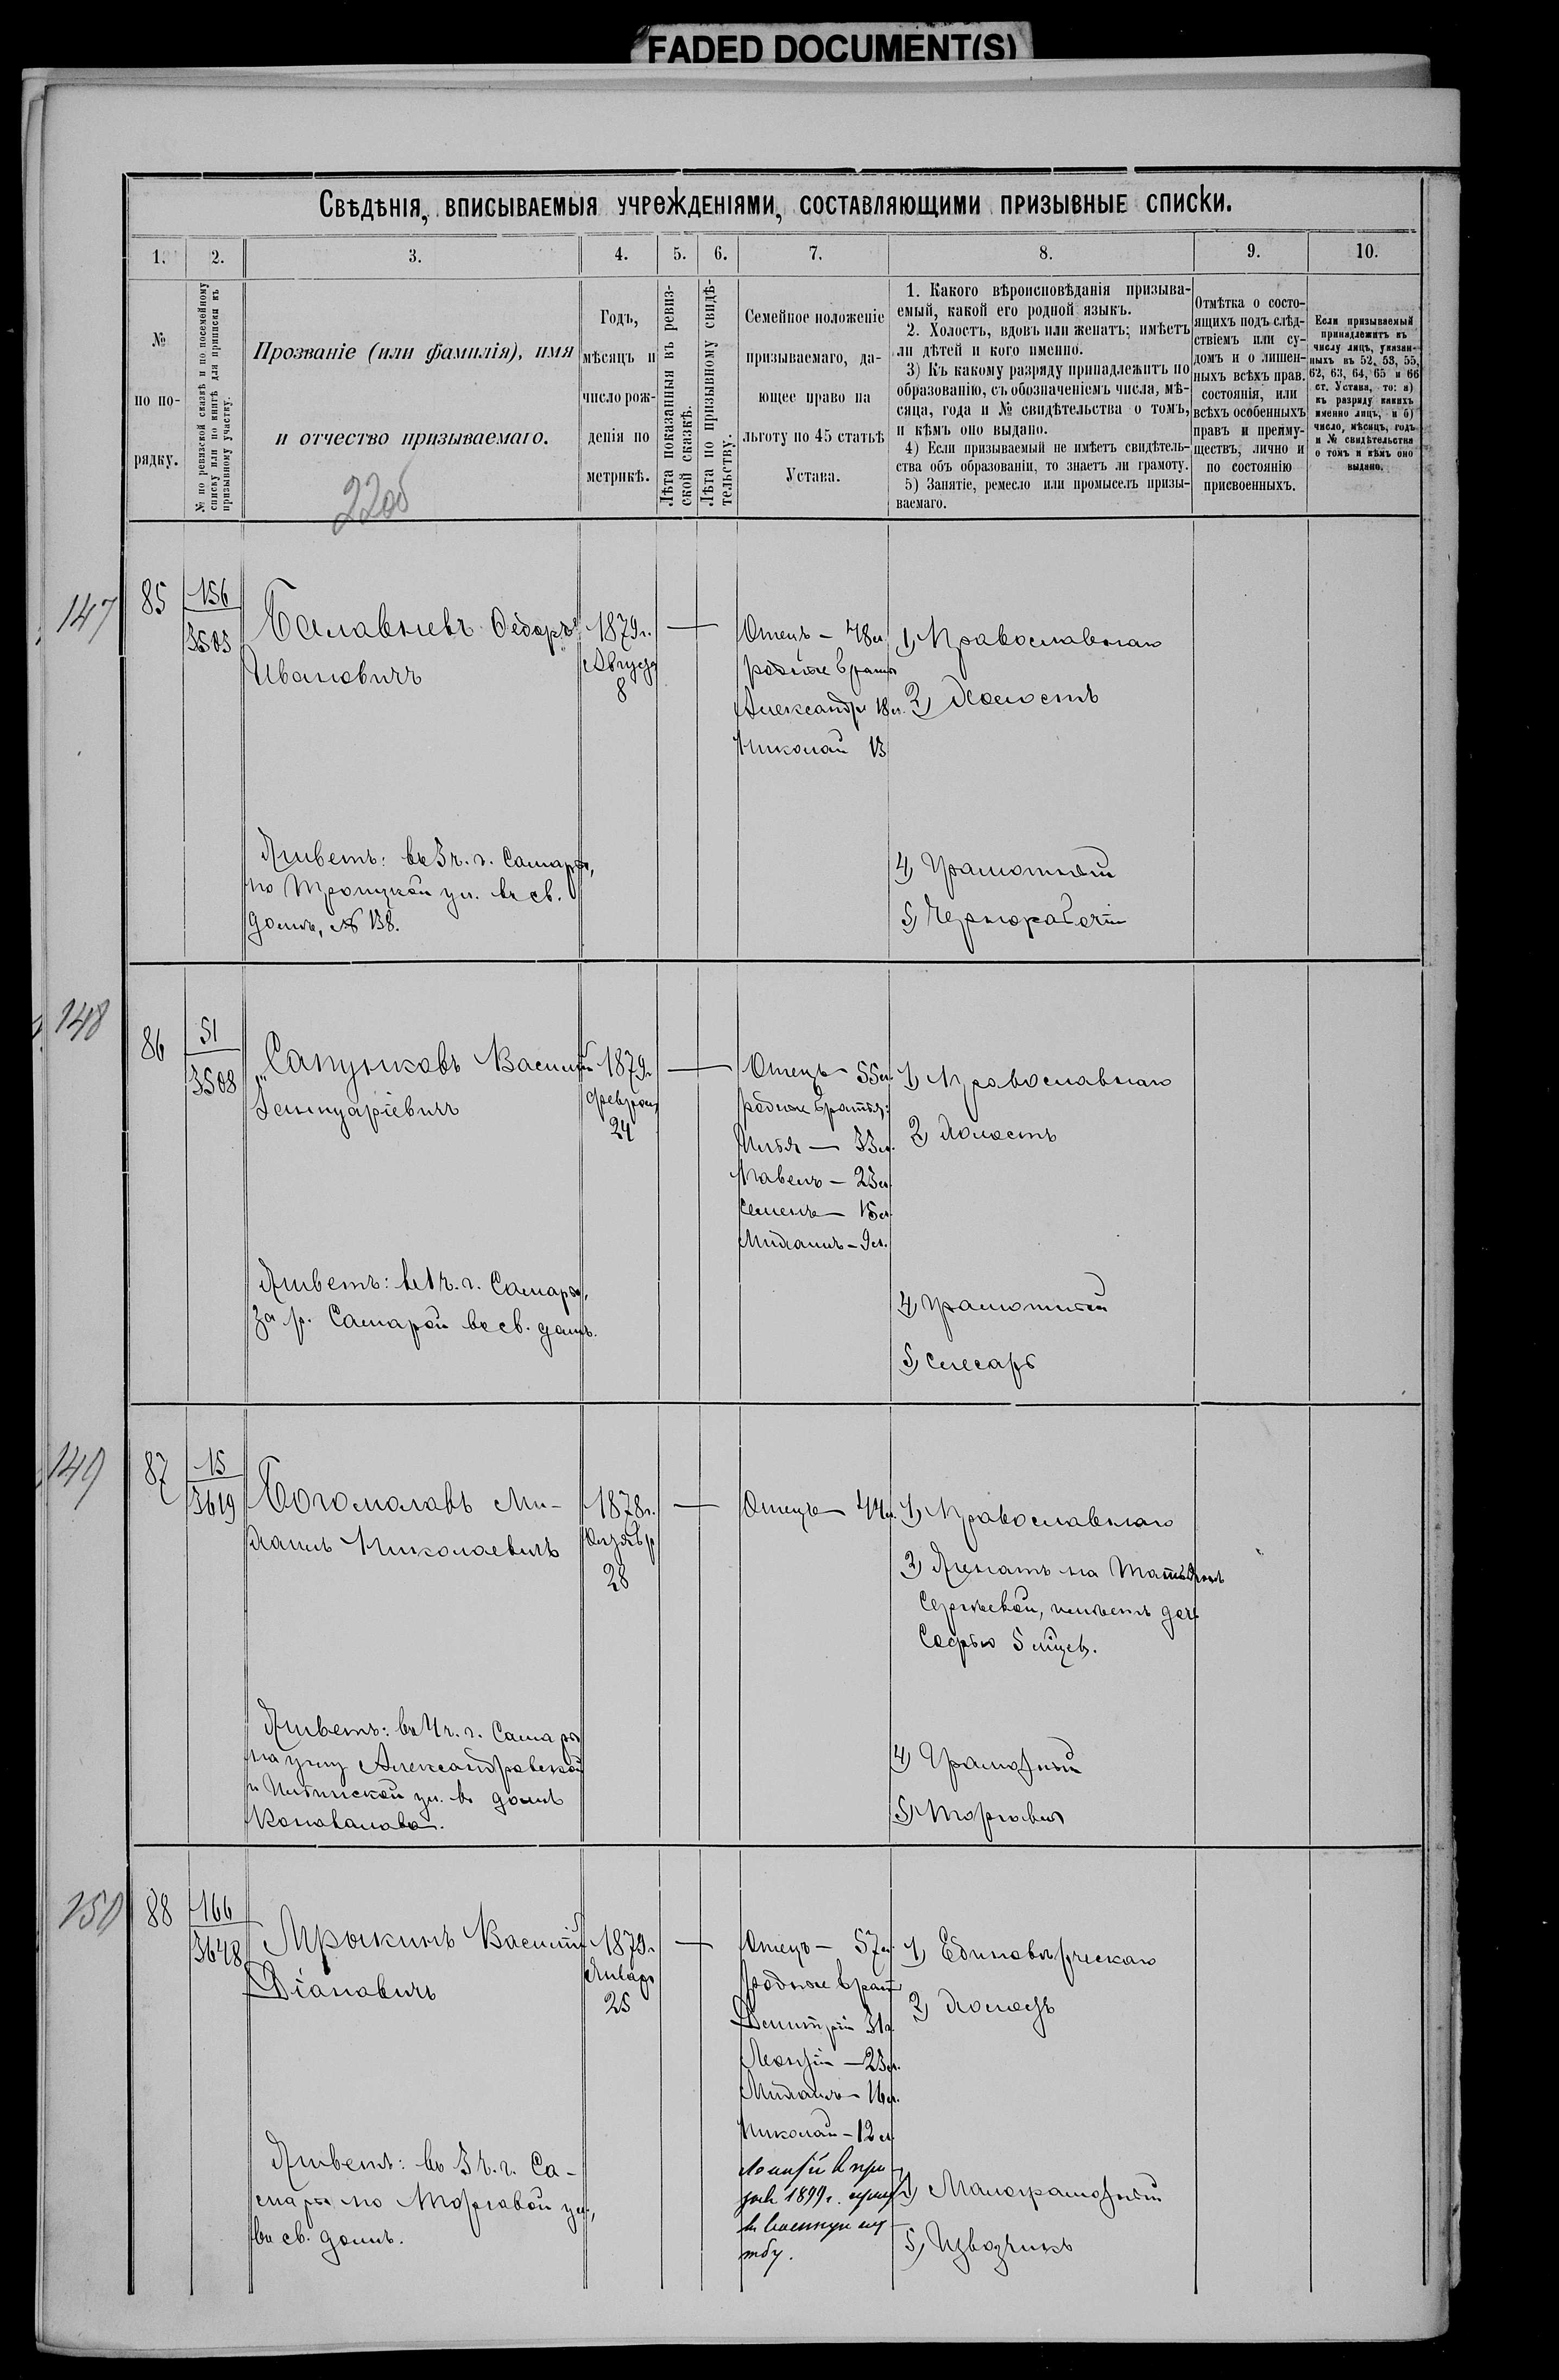 FADED DOCUMENT(S)
Свѣдѣнія, вписываемыя учрежденіями, составляющими призывные списки.
1. 2. 3. 4. 5. 6. 7. 8. 9. 10.
№
по по-
рядку.
№ по ревизской сказкѣ и по посемейному
списку или по книгѣ для приписки къ
призывному участку.
Прозваніе (или фамилія), имя
и отчество призываемаго.
22об
Годъ,
мѣсяцъ и
число рож-
денія по
метрикѣ.
Лѣта показанныя въ ревиз-
ской сказкѣ.
Лѣта по призывному свидѣ-
тельству.
Семейное положеніе
призываемаго, да-
ющее право на
льготу по 45 статьѣ
Устава.
1. Какого вѣроисповѣданія призыва-
емый, какой его родной языкъ.
2. Холостъ, вдовъ или женатъ; имѣетъ
ли дѣтей и кого именно.
3) Къ какому разряду принадлежитъ по
образованію, съ обозначеніемъ числа, мѣ-
сяца, года и № свидѣтельства о томъ,
и кѣмъ оно выдано.
4) Если призываемый не имѣетъ свидѣтель-
ства объ образованіи, то знаетъ ли грамоту.
5) Занятіе, ремесло или промыселъ призы-
ваемаго.
Отмѣтка о состо-
ящихъ подъ слѣд-
ствіемъ или су-
домъ и о лишен-
ныхъ всѣхъ прав.
состоянія, или
всѣхъ особенныхъ
правъ и преиму-
ществъ, лично и
по состоянію
присвоенныхъ.
Если призываемый
принадлежитъ къ
числу лицъ, указан-
ныхъ въ 52, 53, 55,
62, 63, 64, 65 и 66
ст. Устава, то: а)
къ разряду какихъ
именно лицъ, и б)
число, мѣсяцъ, годъ
и № свидѣтельства
о томъ и кѣмъ оно
выдано.
147
85
156
3503
Балавневъ Ѳедоръ
Ивановичъ
1879г.
Августа
8
Отецъ - 48л
родные братья
Александръ 18л.
Николай 13
1) Православнаго
2) Холостъ
Живетъ: въ 3 ч. г. Самары,
по Троицкой ул. въ св.
домѣ, № 138.
4) Грамотный
5) Чернорабочій
148
86
51
3508
Сапунковъ Василій
Геннуаріевичъ
1879г.
Февраля
24
Отецъ - 55л.
родные братья:
Илья - 33л.
Павелъ - 23л.
Семенъ - 15л.
Михаилъ - 9л.
1) Православнаго
2) Холостъ
Живетъ: въ 1 ч. г. Самары,
за р. Самарой въ св. домѣ.
4) Грамотный
5) Слесарь
149
87
15
3619
Богомоловъ Ми-
хаилъ Николаевичъ
1878г.
Октября
28
Отецъ 44л.
1) Православнаго
2) Женатъ на Татьянѣ
Сергѣевой, имѣетъ дочь
Софью 5 мѣсцев.
Живетъ: въ 4 ч. г. Самары
на углу Александровской
и Ильинской ул. въ домѣ
Коновалова.
4) Грамотный
5) Торговля
150
88
166
3648
Мрыкинъ Василій
Діановичъ
1879г.
Января
25
Отецъ - 57л
родные братья
Дмитрій 31л.
Леонтій - 23л.
Михаилъ - 16л.
Николай - 12л
Леонтій въ при-
зывѣ 1899г.
въ военную слу-
жбу.
1) Единовѣрческаго
2) Холостъ
Живетъ: въ 3 ч. г. Са-
мары по Торговой ул.,
въ св. домѣ.
4) Малограмотный
5) Извозчикъ